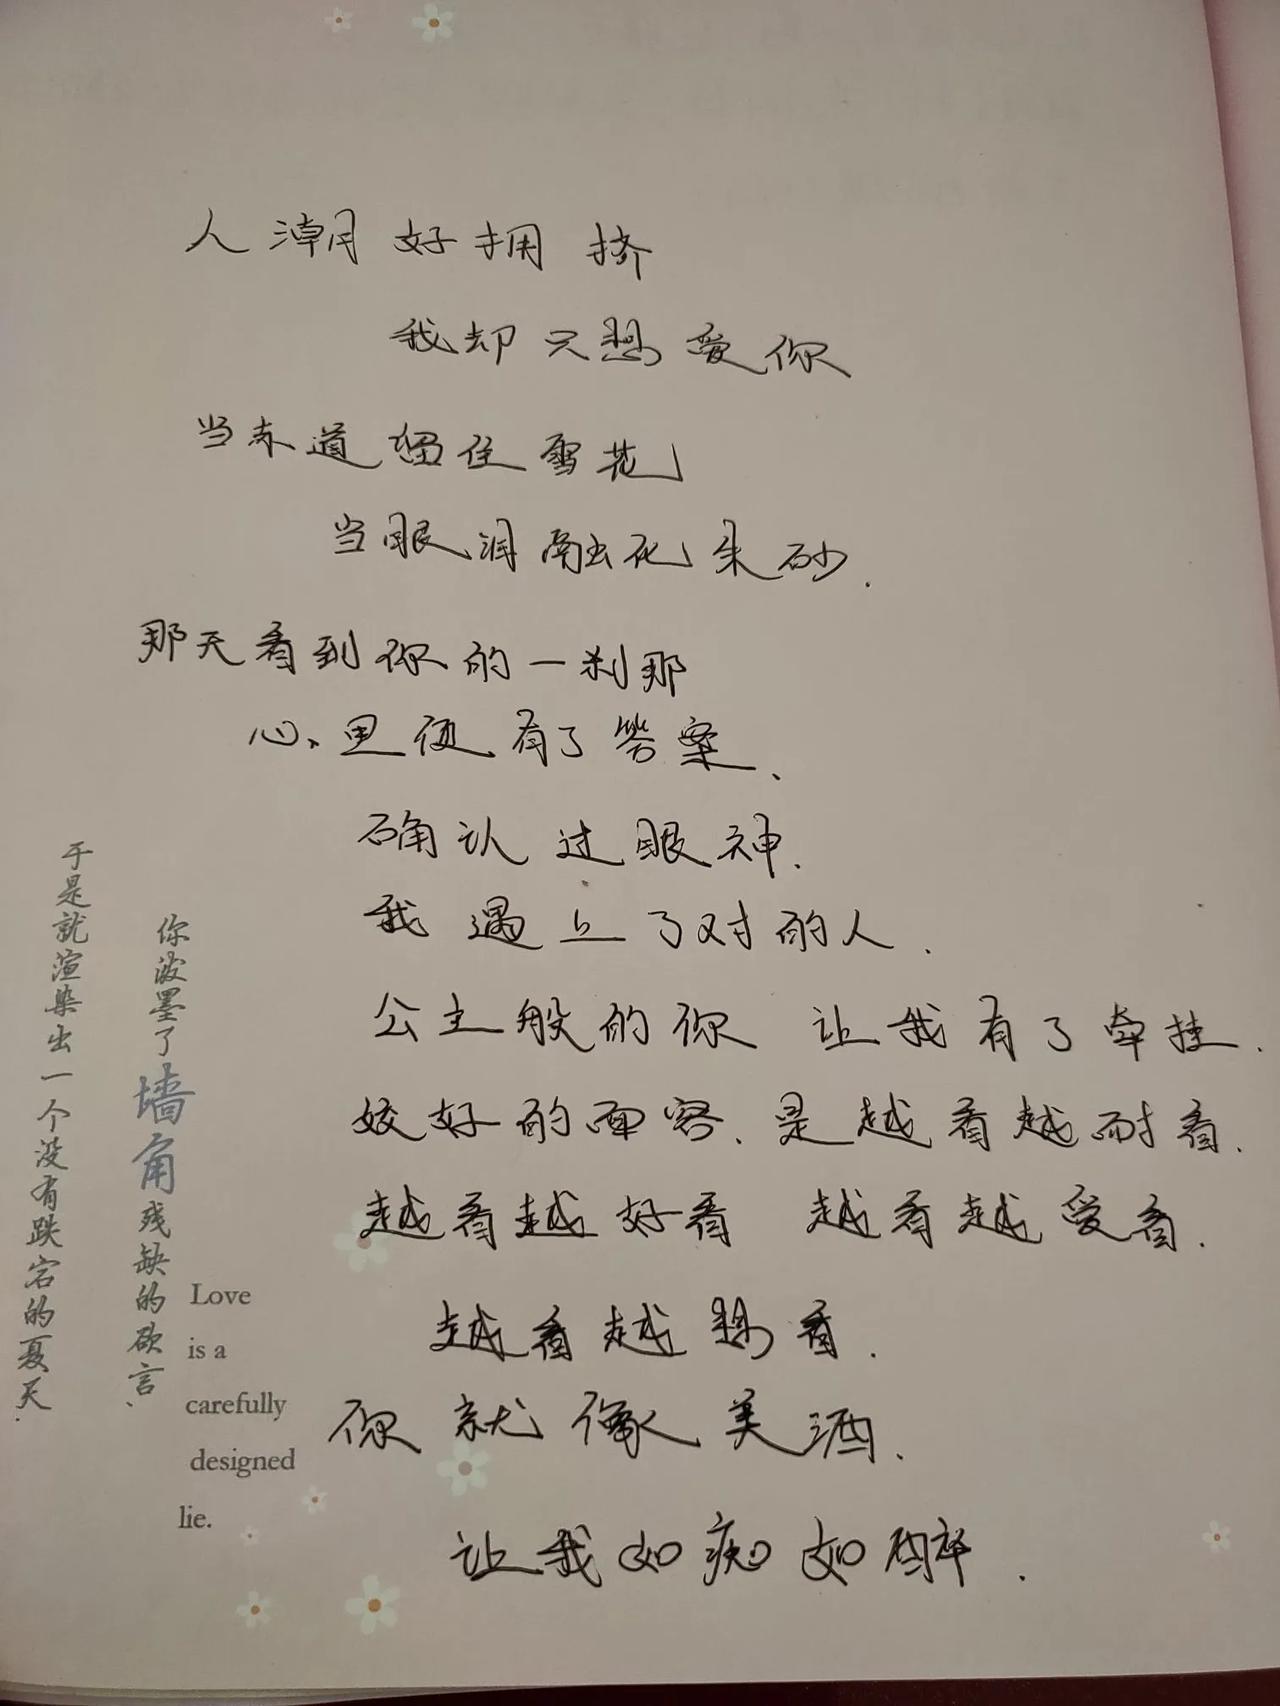 人潮好拥挤
我却只想爱你
当赤道留住雪花
当眼泪融化朱砂.
那天看到你的一刹那
心里便有了答案、
确认过眼神.
我遇上了对的人.
公主般的你 让我有了牵挂.
姣好的面容、是越看越耐看.
越看越好看 越看越爱看.
越看越想看.
你就像美酒.
让我如痴如醉.
你泼墨了墙角残缺的欲言.
于是就渲染出一个没有跌宕的夏天.
Love
is a
carefully
designed
lie.